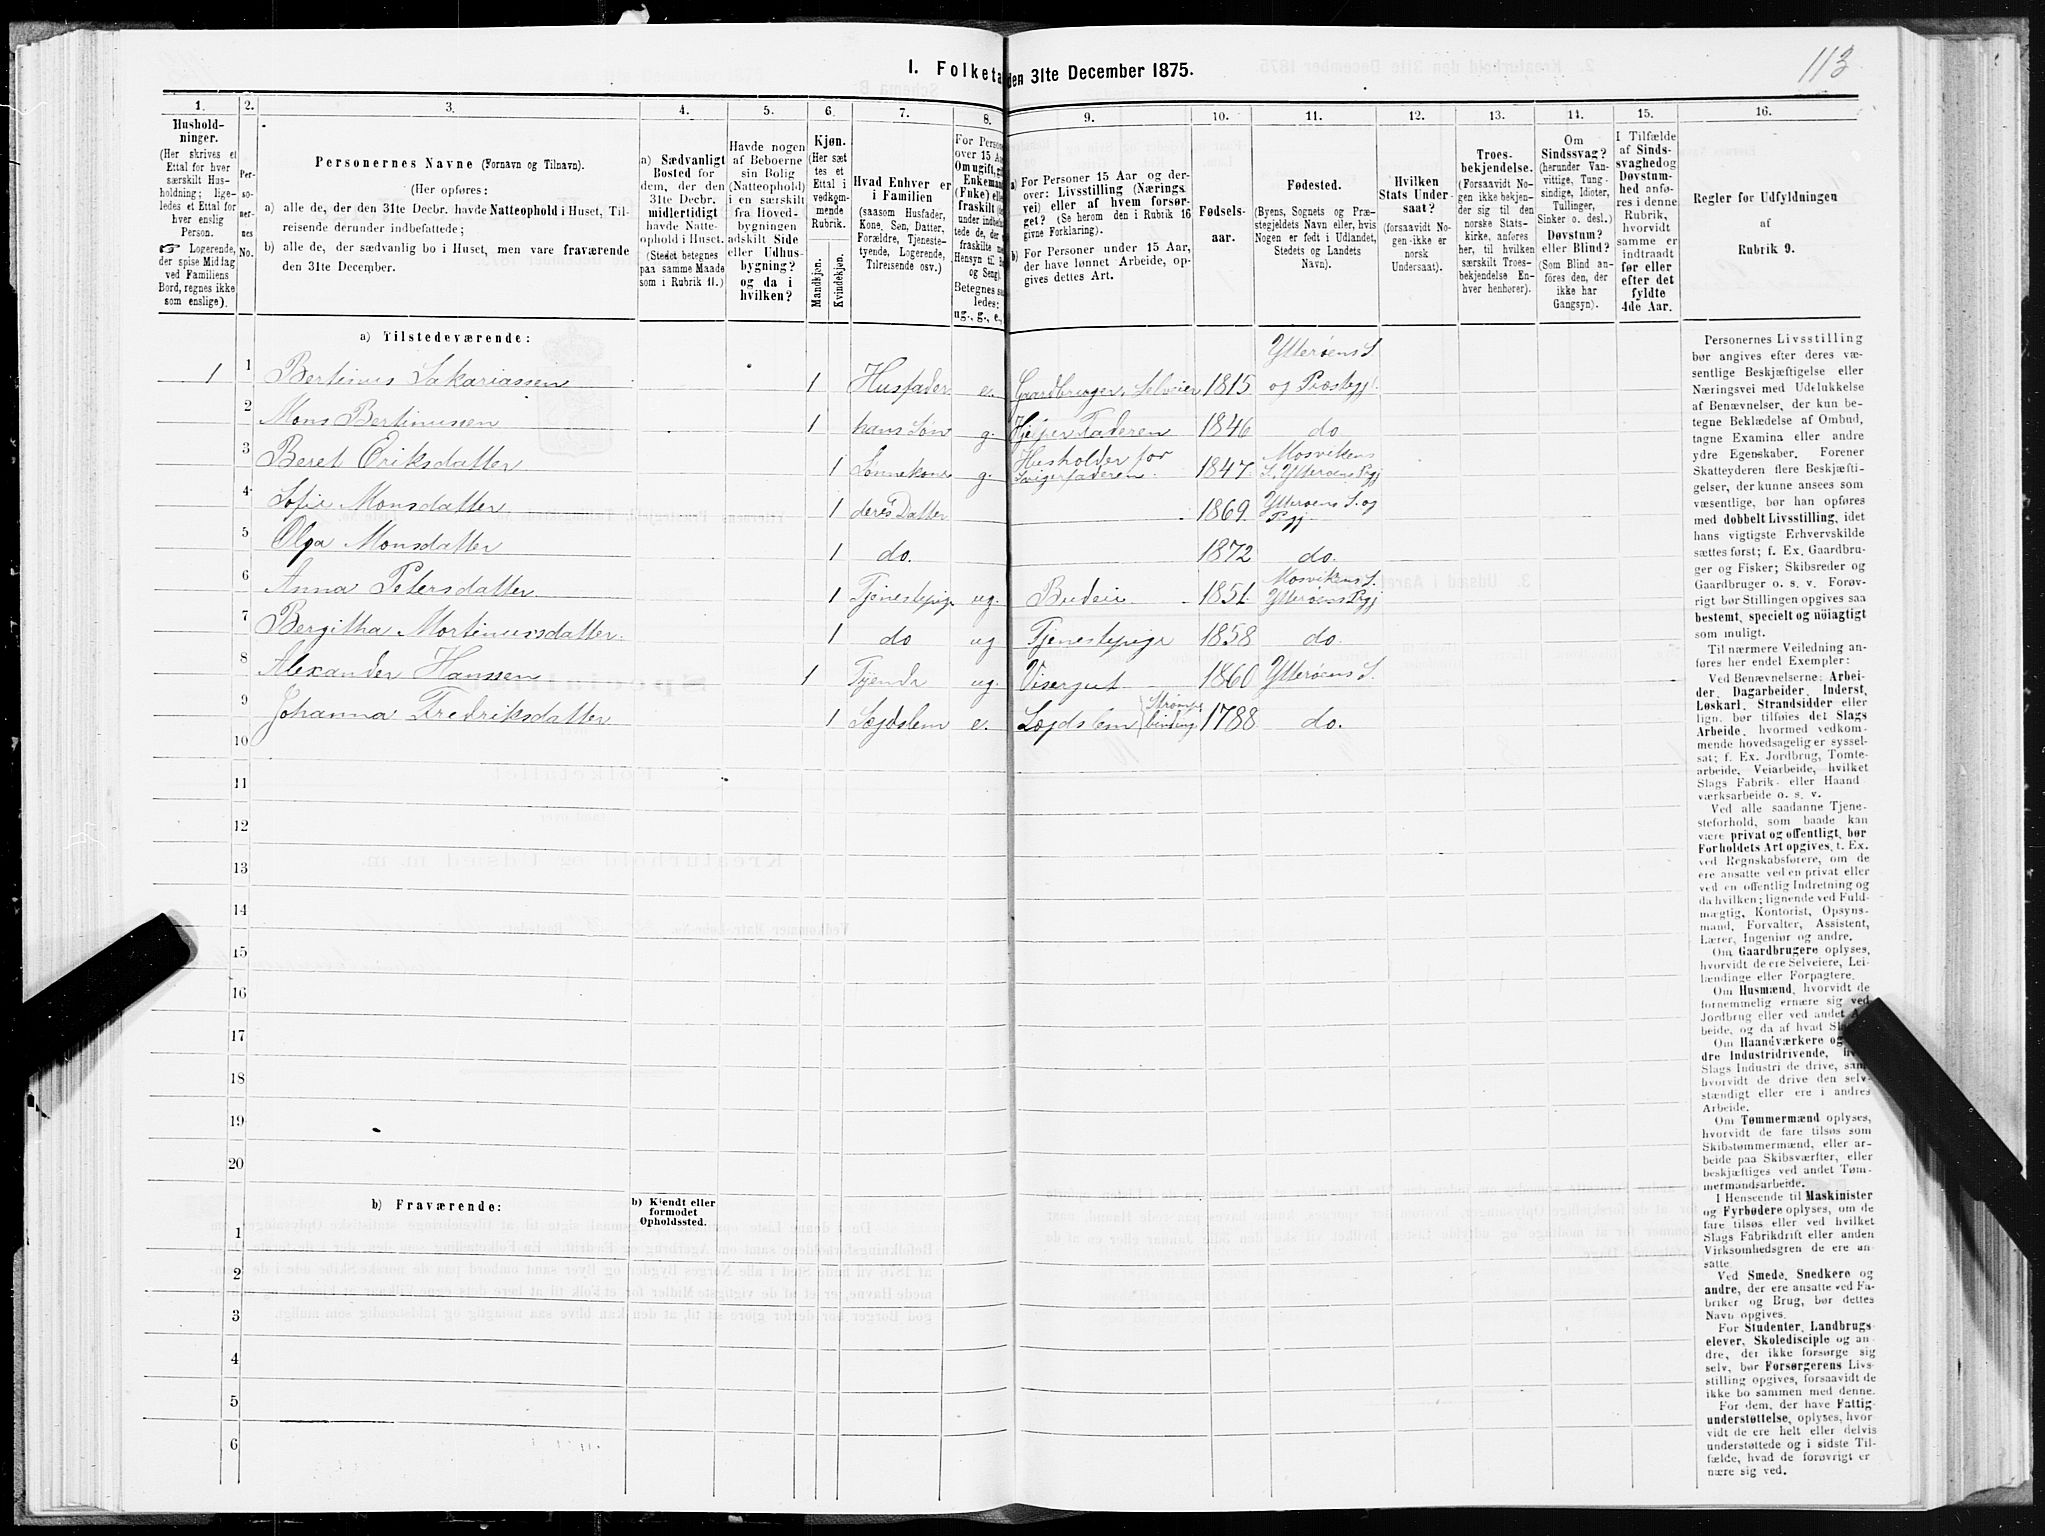 113
I. Folketa den 31te December 1875.
1.
Hushold-
ninger.
(Her skrives et
Ettal for hver
særskilt Hus-
holdning; lige-
ledes et Ettal for
hver enslig
Person.
☞ Logerende,
der spise Middag
ved Familiens
Bord, regnes ikke
som enslige).
2.
Per-
so-
ner-
nes
No.
3.
Personernes Navne (Fornavn og Tilnavn).
(Her opføres:
a) alle de, der den 31te Decbr. havde Natteophold i Huset, Til-
reisende derunder indbefattede;
b) alle de, der sædvanlig bo i Huset, men vare fraværende
den 31te December.
4.
a) Sædvanligt
Bosted for
dem, der den
31te Decbr.
midlertidigt
havde Natte-
ophold i Huset.
(Stedet betegnes
paa samme Maade
som i Rubrik 11.)
5.
Havde nogen
af Beboerne
sin Bolig
(Natteophold)
i en særskilt
fra Hoved-
bygningen
adskilt Side
eller Udhus-
bygning?
og da i
hvilken?
6.
Kjøn.
(Her sæt
tes et
Ettal i
vedkom-
mende
Rubrik.
Mandkjøn.
Kvindekjøn.
7.
Hvad Enhver er
i Familien
(saasom Husfader,
Kone, Søn, Datter,
Forældre, Tjeneste-
tyende, Logerende,
Tilreisende osv.)
8.
For Persone
over 15 Aar
Om ugift, gi
Enkemand
(Enke) elle
fraskilt
Betegnes saa
ledes:
ug., g., e.,
9.
a) For Personer 15 Aar og der-
over: Livsstilling (Nærings
vei) eller af hvem forsør-
get? (Se herom den i Rubrik 16
givne Forklaring).
b) For Personer under 15 Aar,
der have lønnet Arbeide, op-
gives dettes Art.
10.
Fødsels-
aar.
11.
Fødested.
(Byens, Sognets og Præ-
stegjeldets Navn eller, hvis
Nogen er født i Udlandet,
Stedets og Landets
Navn).
12.
Hvilken
Stats Under-
saat?
(forsaavidt No-
gen ikke er
norsk
Undersaat).
13.
Troes-
bekjendelse.
(Forsaavidt No-
gen ikke bekjen-
der sig til den
norske Stats-
kirke, anføres
her, til hvilken
særskilt Troes-
bekjendelse En-
hver henhører).
14.
Om
Sindssvag?
(herunder Van-
vittige, Tung-
sindige, Idioter,
Tullinger,
Sinker o. desl.)
Døvstum?
eller Blind?
(Som Blind an-
føres den, der
ikke har
Gangsyn).
15.
I Tilfælde
af Sinds-
svaghed og
Døvstum-
hed anfø-
res i denne
Rubrik,
hvorvidt
samme er
indtraadt
før eller
efter det
fyldte
4de Aar.
16.
Regler for Udfyldningen
af
Rubrik 9.
a) Tilstedeværende:
1 1 Bertinus Sakariassen 1 Husfader e. Gaardbruger, Selveier 1815 Ytterøens S. og Præstegj.
2 Mons Bertinussen 1 hans Søn g. Hjelper Faderen 1846 do
3 Beret Eriksdatter 1 Sønnekone g. Husholder for Svigerfaderen. 1847 Mosvikens S. Ytterøens Pgj
4 Sofie Monsdatter 1 deres Datter 1869. Ytterøens S. og Pgj
5 Olga Monsdatter 1 do. 1872 do.
6 Anna Petersdatter 1 Tjenestepige ug. Budeie 1851. Mosvikens S. Ytterøens Pgj
7 Bergitha Mortinussdatter. 1 do ug Tjenestepige 1858 do.
8 Alexander Hanssen 1 Tjende ug. Visergut 1860 Ytterøens S.
9 Johanna Fredriksdatter 1 Lægdslem e. Lægdslem Strømpebinding 1788 do.
10
11
12
13
14
15
16
17
18
19
20
b) Fraværende:
b) Kjendt eller
formodet
Opholdssted.
1
2
3
4
5
6
Personernes Livsstilling
bør angives efter deres væ-
sentlige Beskjæftigelse eller
Næringsvei med Udelukkelse
af Benævnelser, der kun be-
tegne Beklædelse af Ombud,
tagne Examina eller andre
ydre Egenskaber. Forener
Skatteyderen flere Beskjæfti-
gelser, der kunne ansees som
væsentlige, bør han opføres
med dobbelt Livsstilling, idet
hans vigtigste Erhvervskilde
sættes først; f. Ex. Gaardbru-
ger og Fisker; Skibsreder og
Gaardbruger o. s. v. Forøv-
rigt bør Stillingen opgives saa
bestemt, specielt og nöiagtigt
som muligt.
Til nærmere Veiledning an-
føres her endel Exempler:
Ved Benævnelserne: Arbei-
der, Dagarbeider, Inderst,
Løskarl, Strandsidder eller
lign. bør tilføies det Slags
Arbeide, hvormed vedkom-
mende hovedsagelig er syssel-
sat; f. Ex. Jordbrug, Tomte-
arbeide, Veiarbeide, hvilket
Slags Fabrik- eller Haand-
værksarbeide o. s. v.
Ved alle saadanne Tjene-
steforhold, som baade kan
være privat og offentligt, bør
Forholdets Art opgives, t. Ex.
ved Regnskabsførere, om de
ere ansatte ved en privat eller
ved en offentlig Indretning og
da hvilken; lignende ved Fuld-
mægtig, Kontorist, Opsyns-
mand, Forvalter, Assistent,
Lærer, Ingeniør og andre.
Om Gaardbrugere oplyses,
hvorvidt de ere Selveiere, Lei-
lændinge eller Forpagtere.
Om Husmænd, hvorvidt de
fornemmelig ernære sig ved
Jordbrug eller ved andet A
beide, og da af hvad Sla
Om Haandværkere og
dre Industridrivende, hv
Slags Industri de drive, sam
hvorvidt de drive den selv-
stændigt eller ere i andres
Arbeide.
Om Tømmermænd oplyses,
hvorvidt de fare tilsøs som
Skibstømmermænd, eller ar-
beide paa Skibsværfter, eller
beskjæftiges ved andet Tøm-
mermandsarbeide.
I Henseende til Maskinister
og Fyrbødere oplyses, om de
fare tilsøs eller ved hvilket
Slags Fabrikdrift eller anden
Virksomhedsgren de ere an-
satte.
Ved Smede, Snedkere og
andre, der ere ansatte ved Fa-
briker og Brug, bør dettes
Navn opgives.
For Studenter, Landbrugs-
elever, Skoledisciple og an-
dre, der ikke forsørge sig
selv, bør Forsørgerens Livs-
stilling opgives, forsaavidt de
ikke bo sammen med denne.
For dem, der have Fattig-
understøttelse, oplyses, hvor-
vidt de ere helt eller delvis
understøttede og i sidste Til-
fælde, hvad de forøvrigt er
nære sig ved.